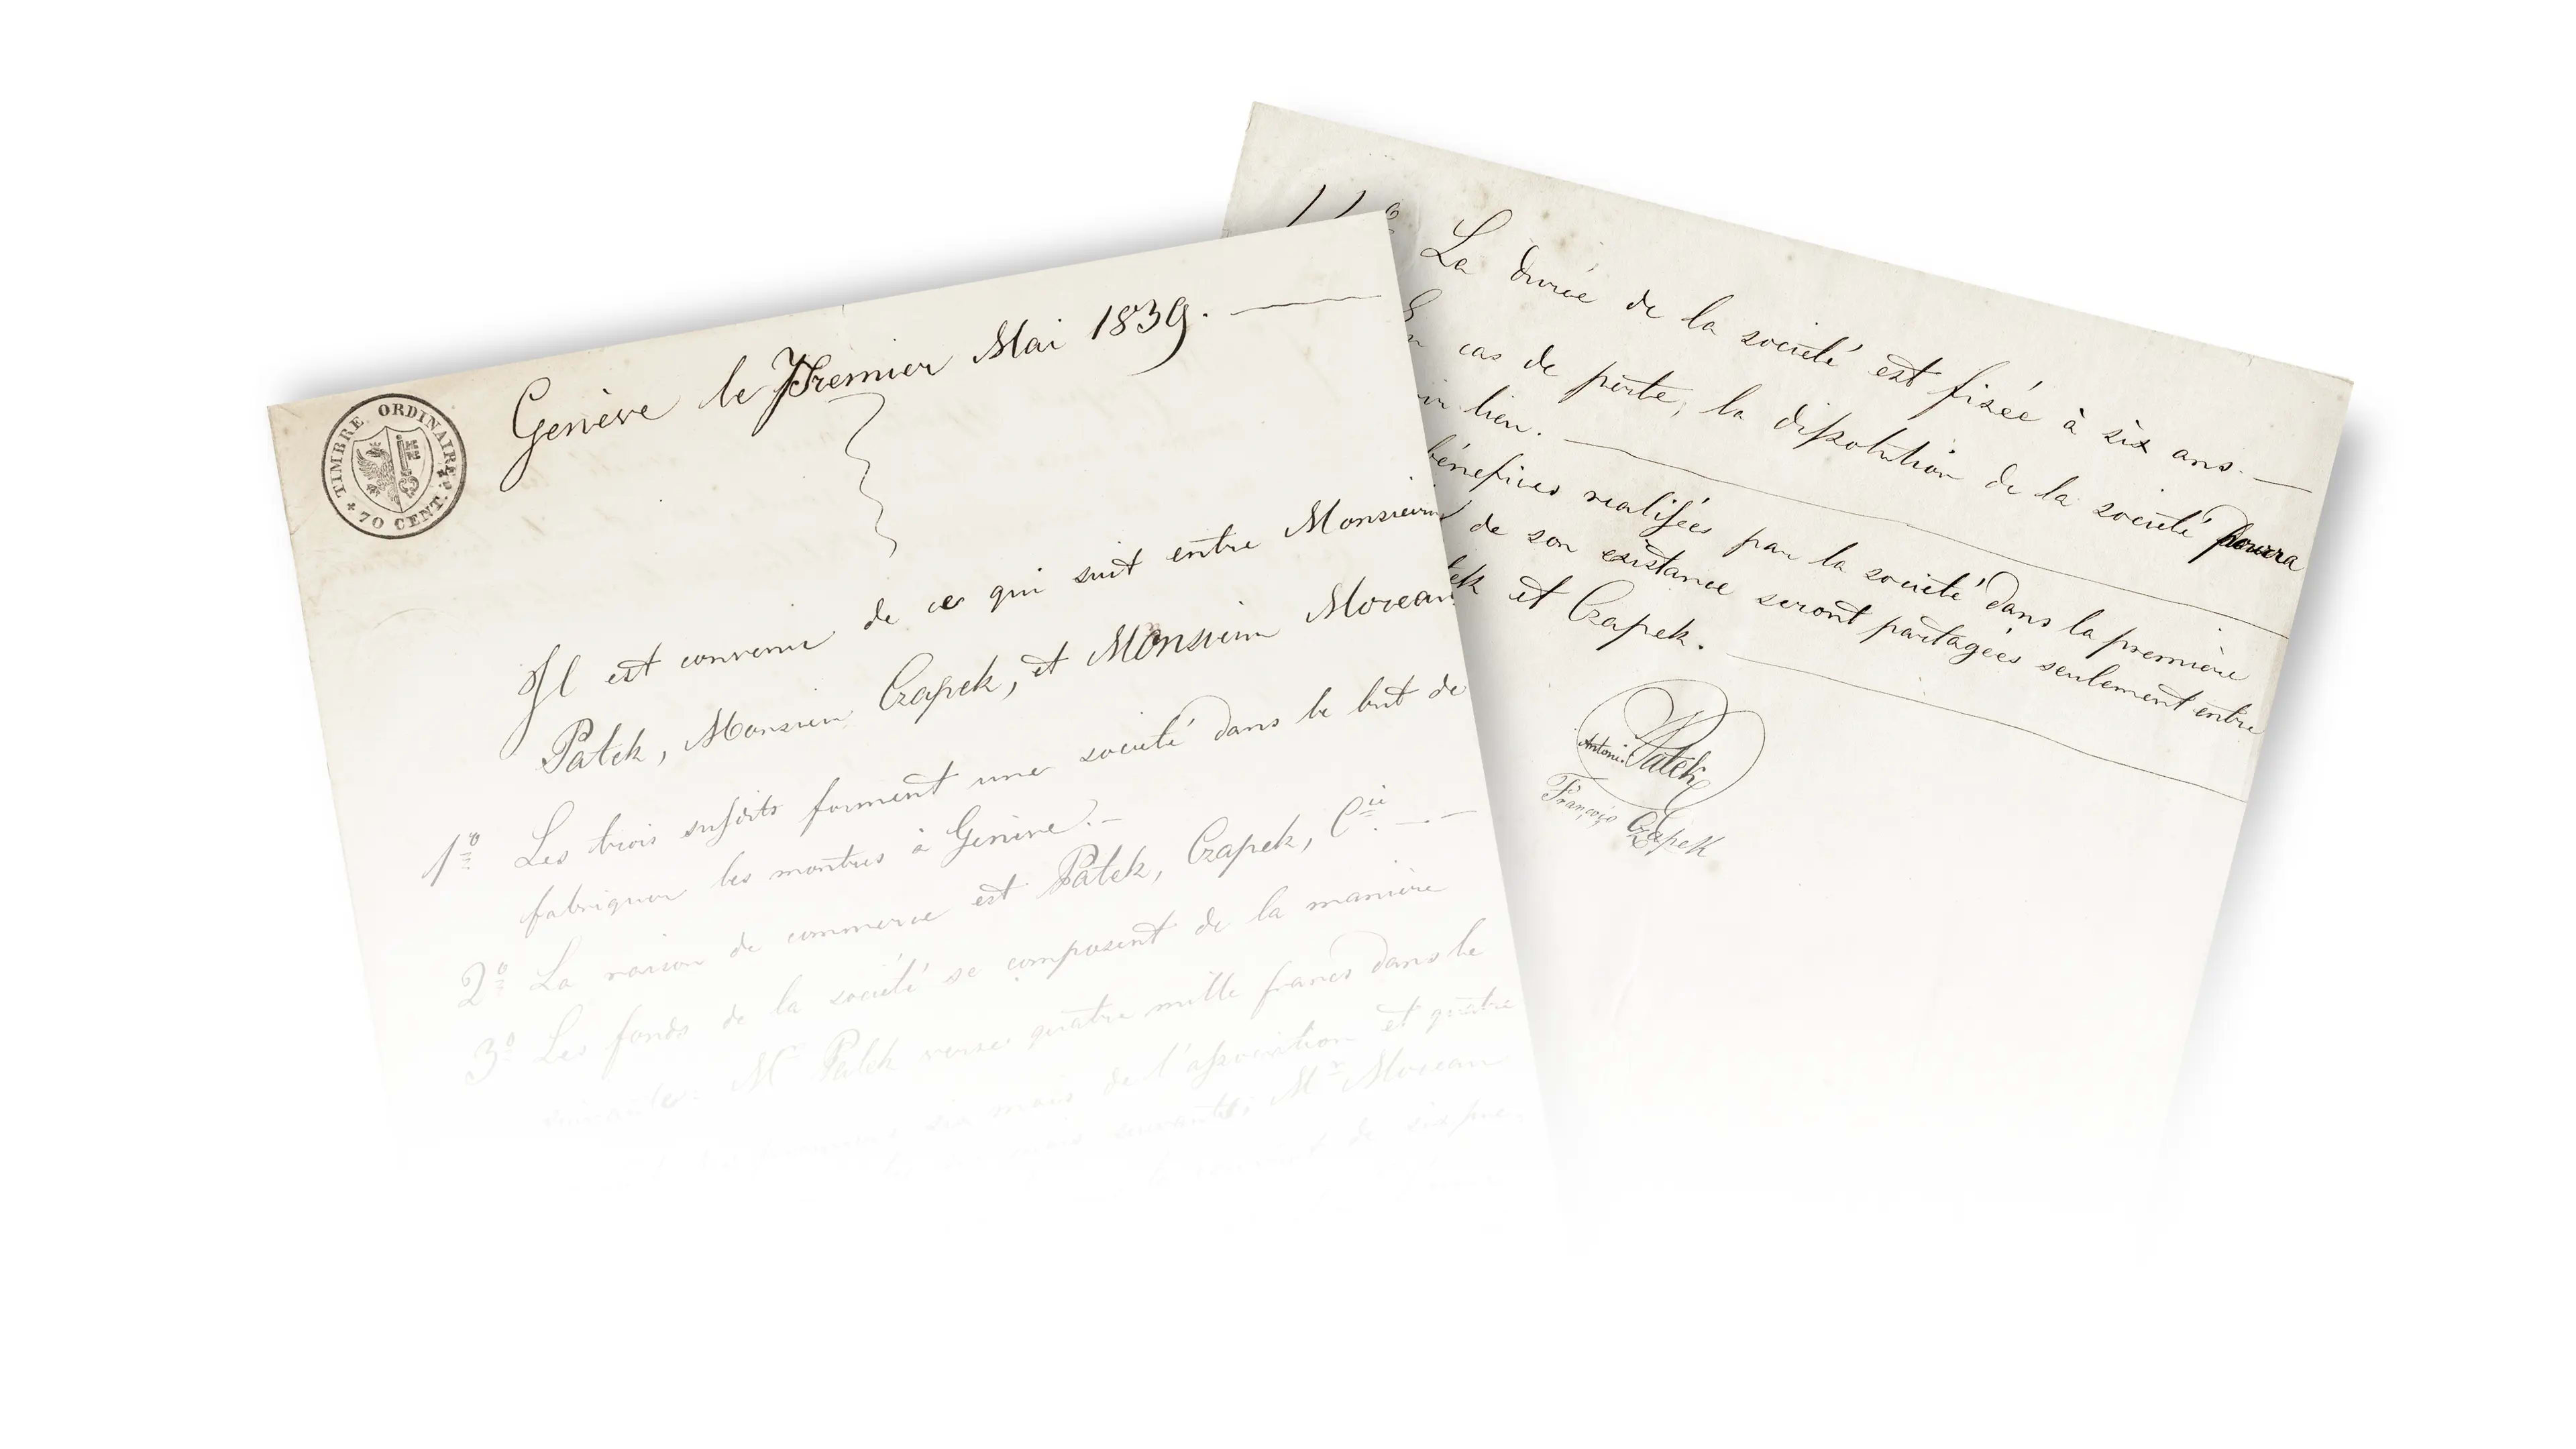 TIMBRE ORDINAIRE
70 CENT.
Genève le Premier Mai 1839.
Il est convenu de ce qui suit entre Monsieur
Patek, Monsieur Czapek, et Monsieur Moreau
1º Les trois susdits forment une société dans le but de
fabriquer les montres à Genève.
2º La raison de commerce est Patek, Czapek, Cie.
3º Les fonds de la société se composent de la manière
suivante: Mr Patek verse quatre mille francs dans le
six mois de l'association et quatre
suivants; Mr Moreau
La durée de la société est fixée à six ans.
cas de perte, la dissolution de la société pourra
lieu.
bénéfices realisées par la société dans la première
de son existance seront partagées seulement entre
et Czapek.
Antoni Patek
François Czapek